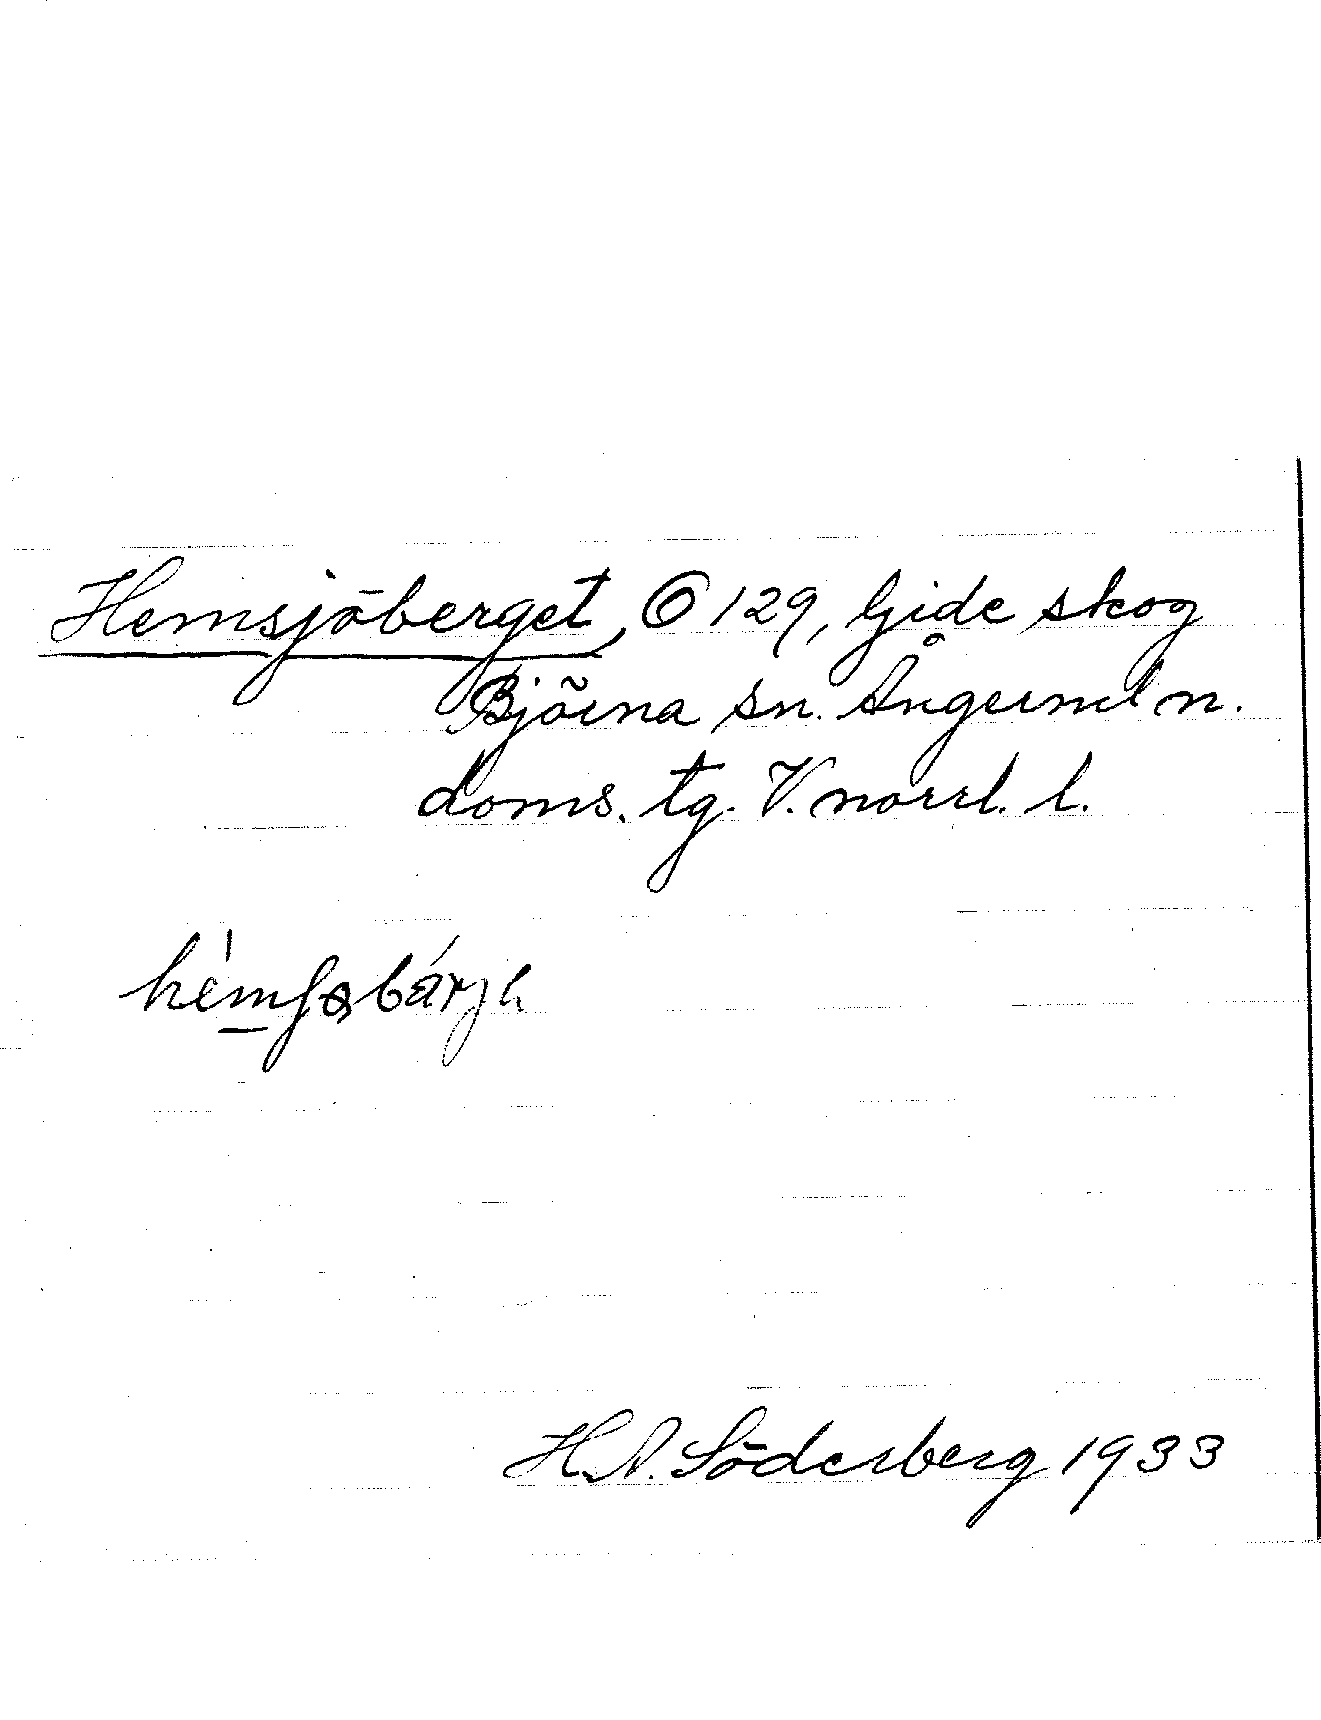 Hemsjöberget, Ⓞ 129, Gide skog
Björna sn. Ångerml n.
doms. tg. V. norrl. l.
hèmʃøbárjh
H.A. Söderberg 1933